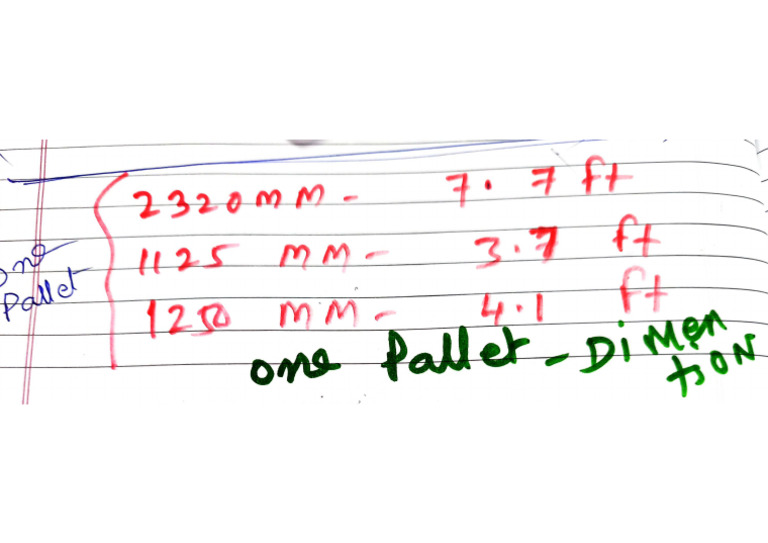 2320 MM - 7.7 ft
1125 MM - 3.7 ft
1250 MM - 4.1 ft
one
Pallet
one Pallet - DiMen
tioN